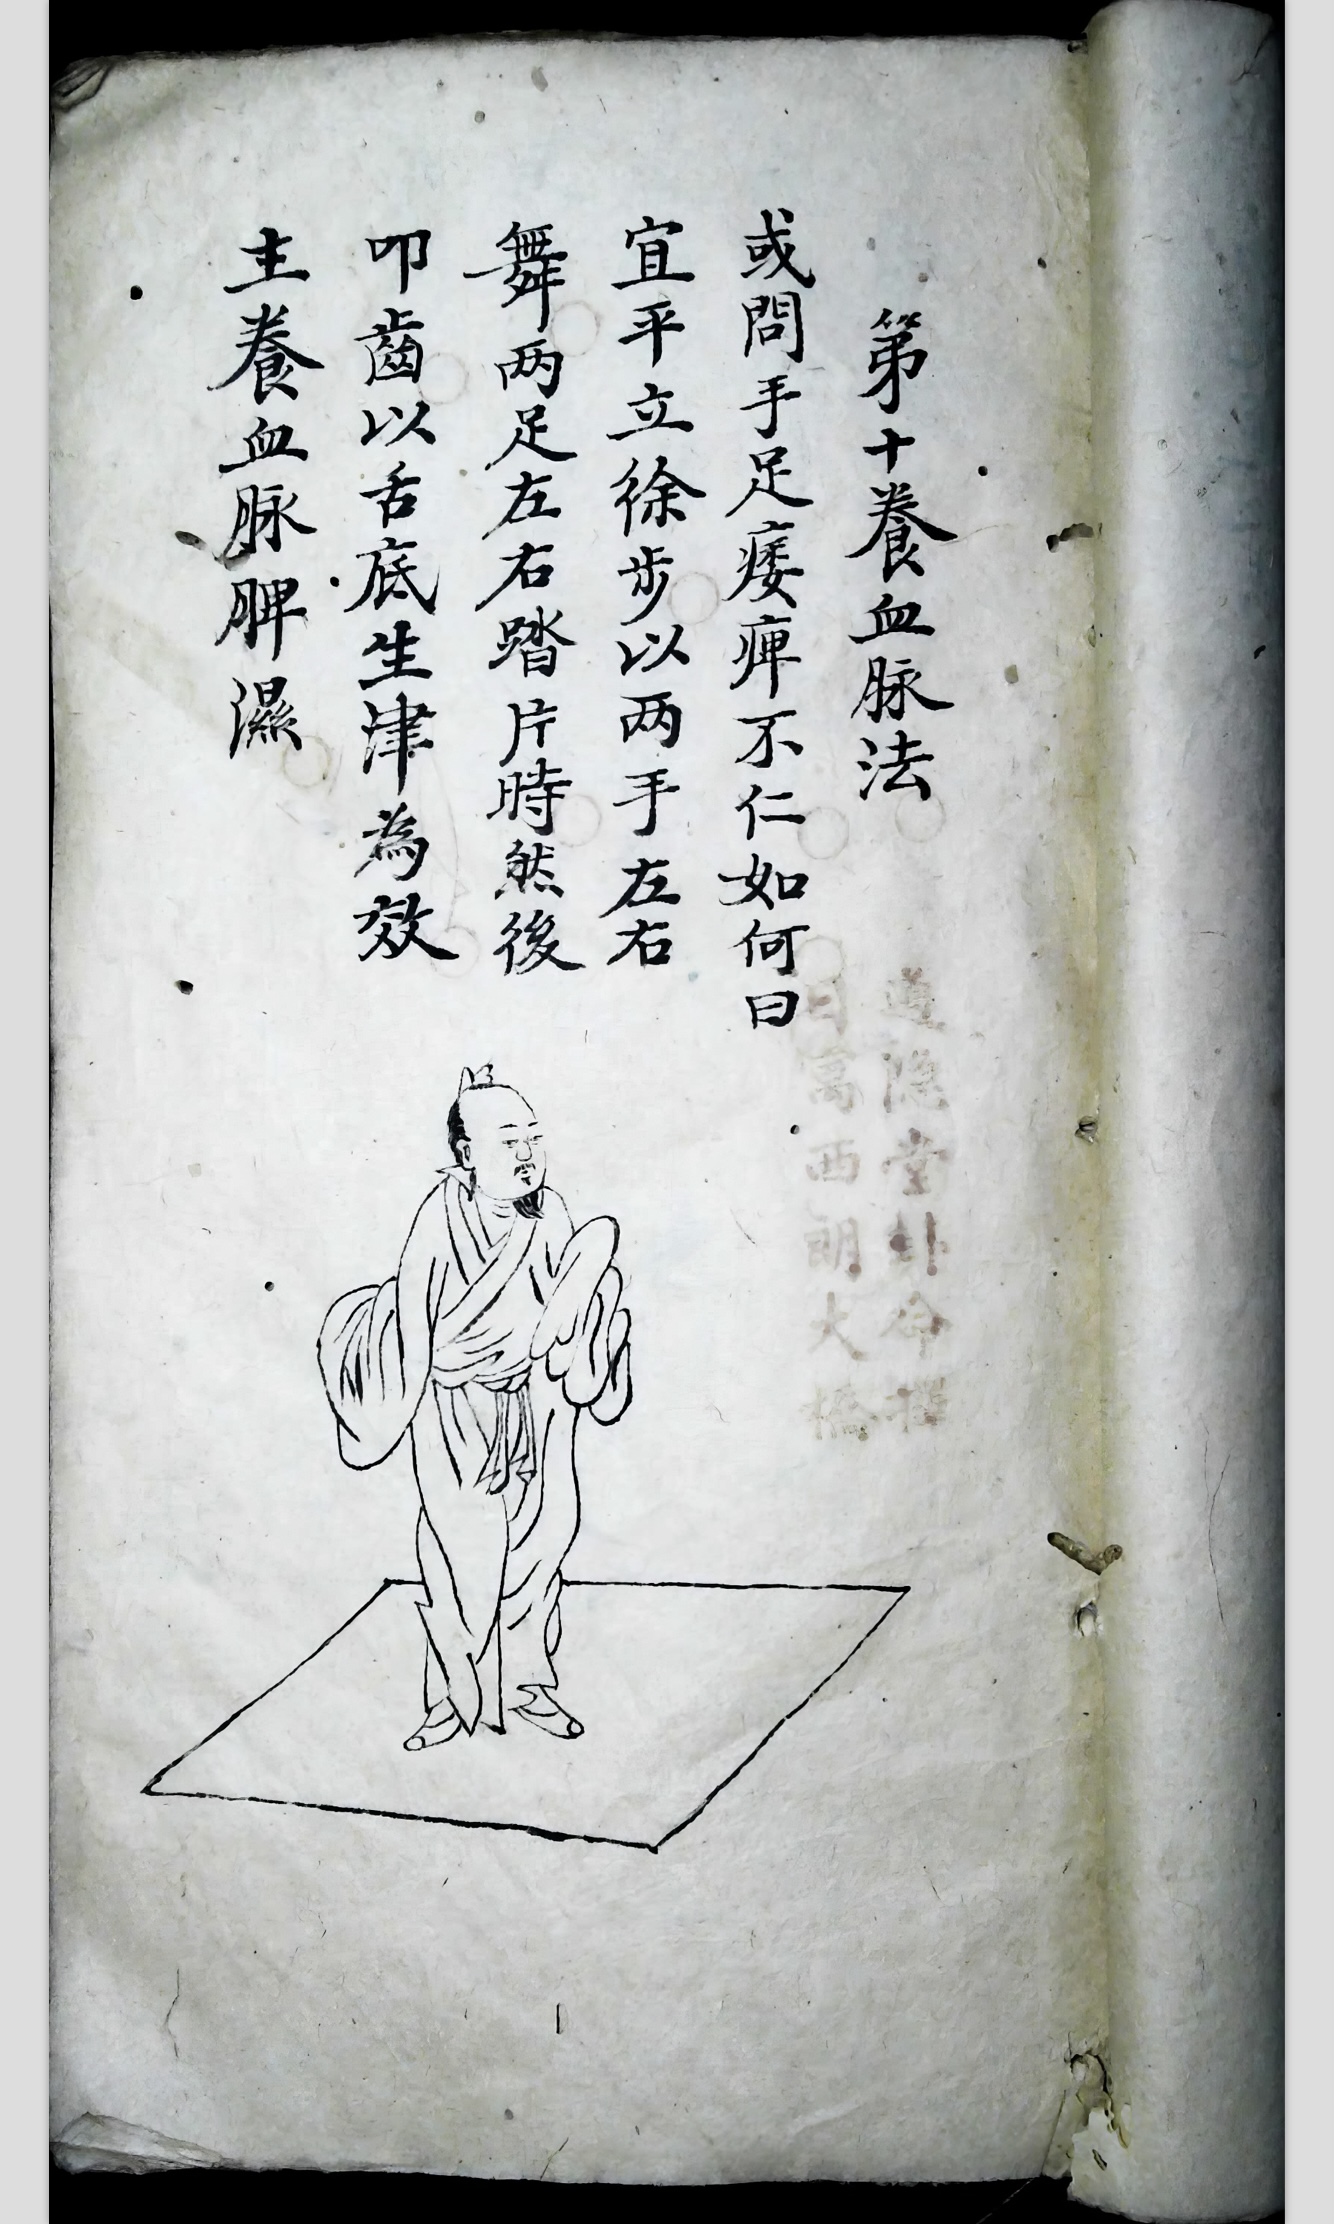 第十養血脉法
或問手足痿痺不仁如何曰
宜平立徐步以两手左右
舞两足左右踏片時然後
叩齒以舌底生津為效
主養血脉脾濕
隐堂卦命
日寓西明大橋